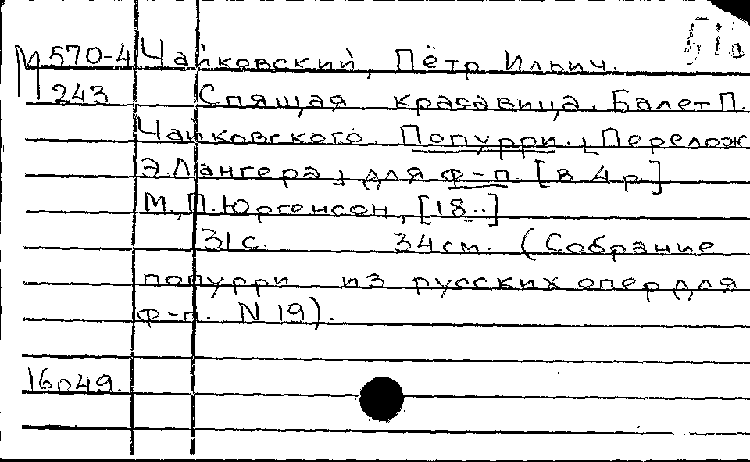 М 570-4 Чайковский, Пётр Ильич.
243 Спящая красавица. Балет П.
Чайковского. Попурри. [Перелож
Э. Лангера] для ф-п. [в 4 р.]
М., П. Юргенсон, [18..]
31 с. 34 см. (Собрание
попурри из русских опер для
ф-п. N 19).
16049.